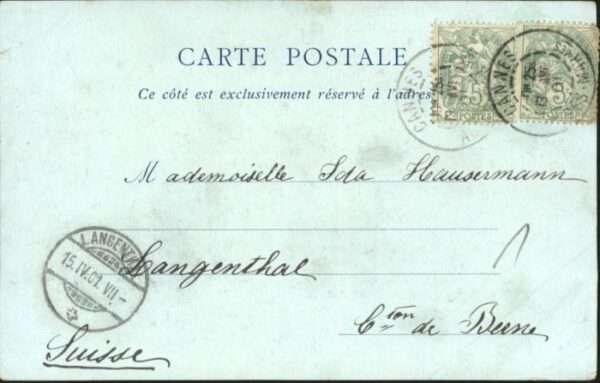 CARTE POSTALE
Ce côté est exclusivement réservé à l'adres
CANNES
CANNES
5
5
POSTES
Mademoiselle Ida Hausermann
LANGENT
15.IV.01.VII-
Langenthal
1
C.ton de Berne
Suisse